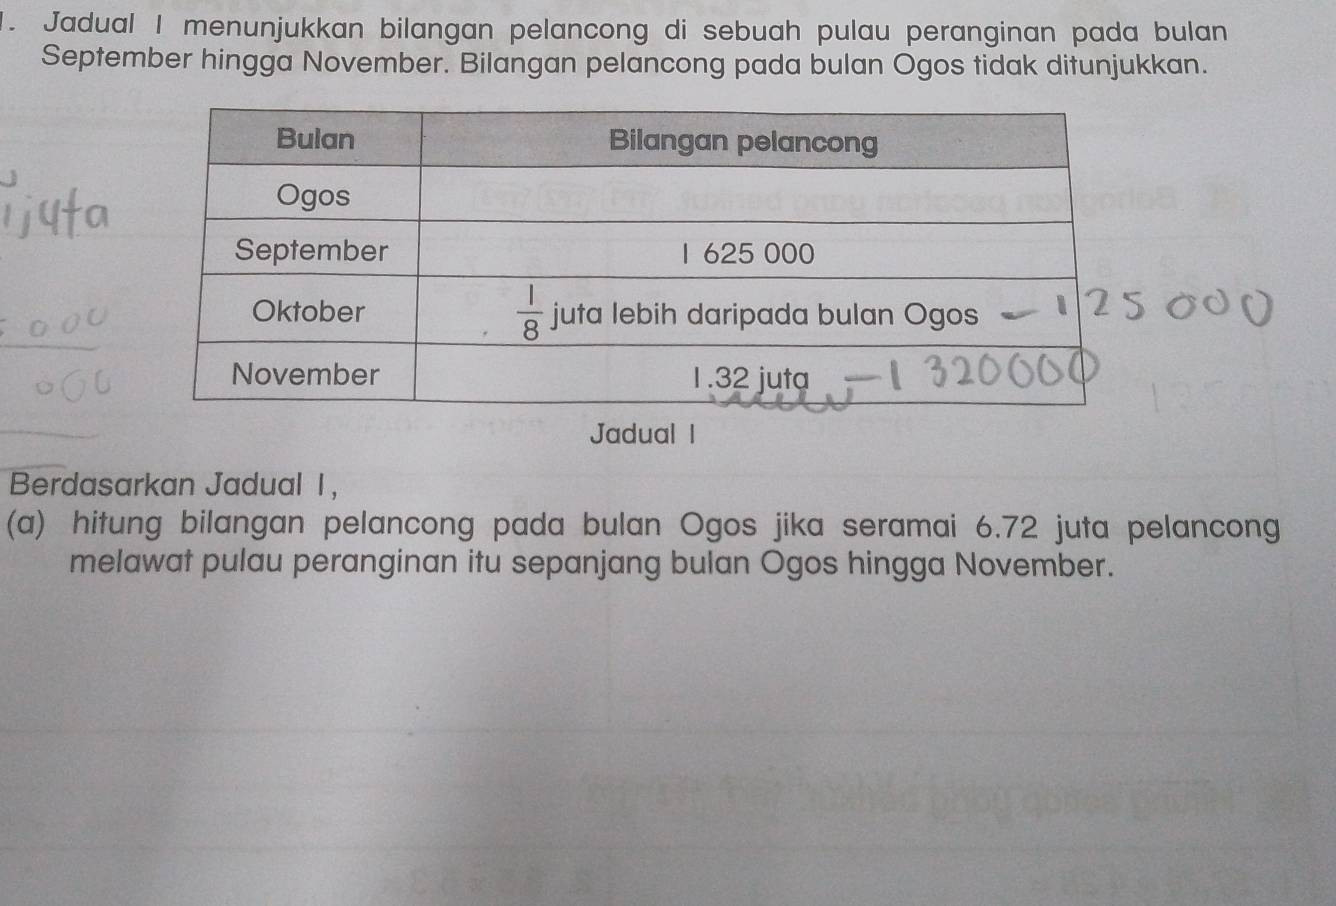 1. Jadual 1 menunjukkan bilangan pelancong di sebuah pulau peranginan pada bulan
September hingga November. Bilangan pelancong pada bulan Ogos tidak ditunjukkan.
Bulan Bilangan pelancong
juta
Ogos
September 1 625 000
Oktober 1/8 juta lebih daripada bulan Ogos - 125 000
000
November 1.32 juta - 1 320000
000
Jadual 1
Berdasarkan Jadual 1,
(a) hitung bilangan pelancong pada bulan Ogos jika seramai 6.72 juta pelancong
melawat pulau peranginan itu sepanjang bulan Ogos hingga November.